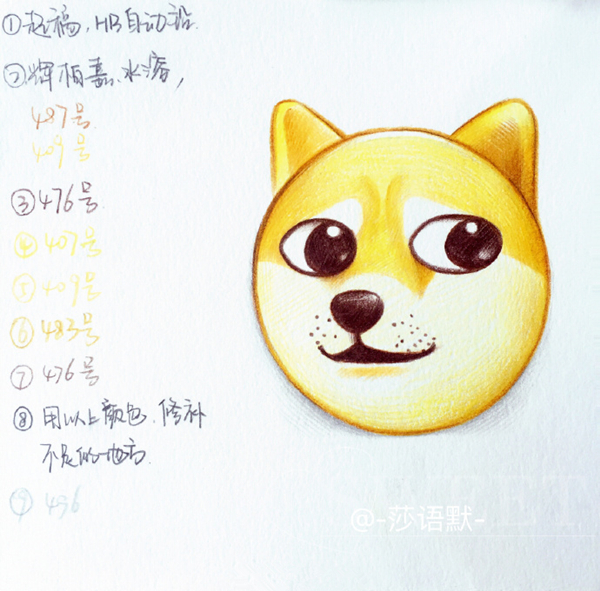 ① 起稿, HB自动铅.
② 辉柏嘉.水溶,
487号
409号
③ 476号
④ 407号
⑤ 409号
⑥ 483号
⑦ 476号
⑧ 用以上颜色.修补
不足的地方.
⑨ 496
@-莎语默-